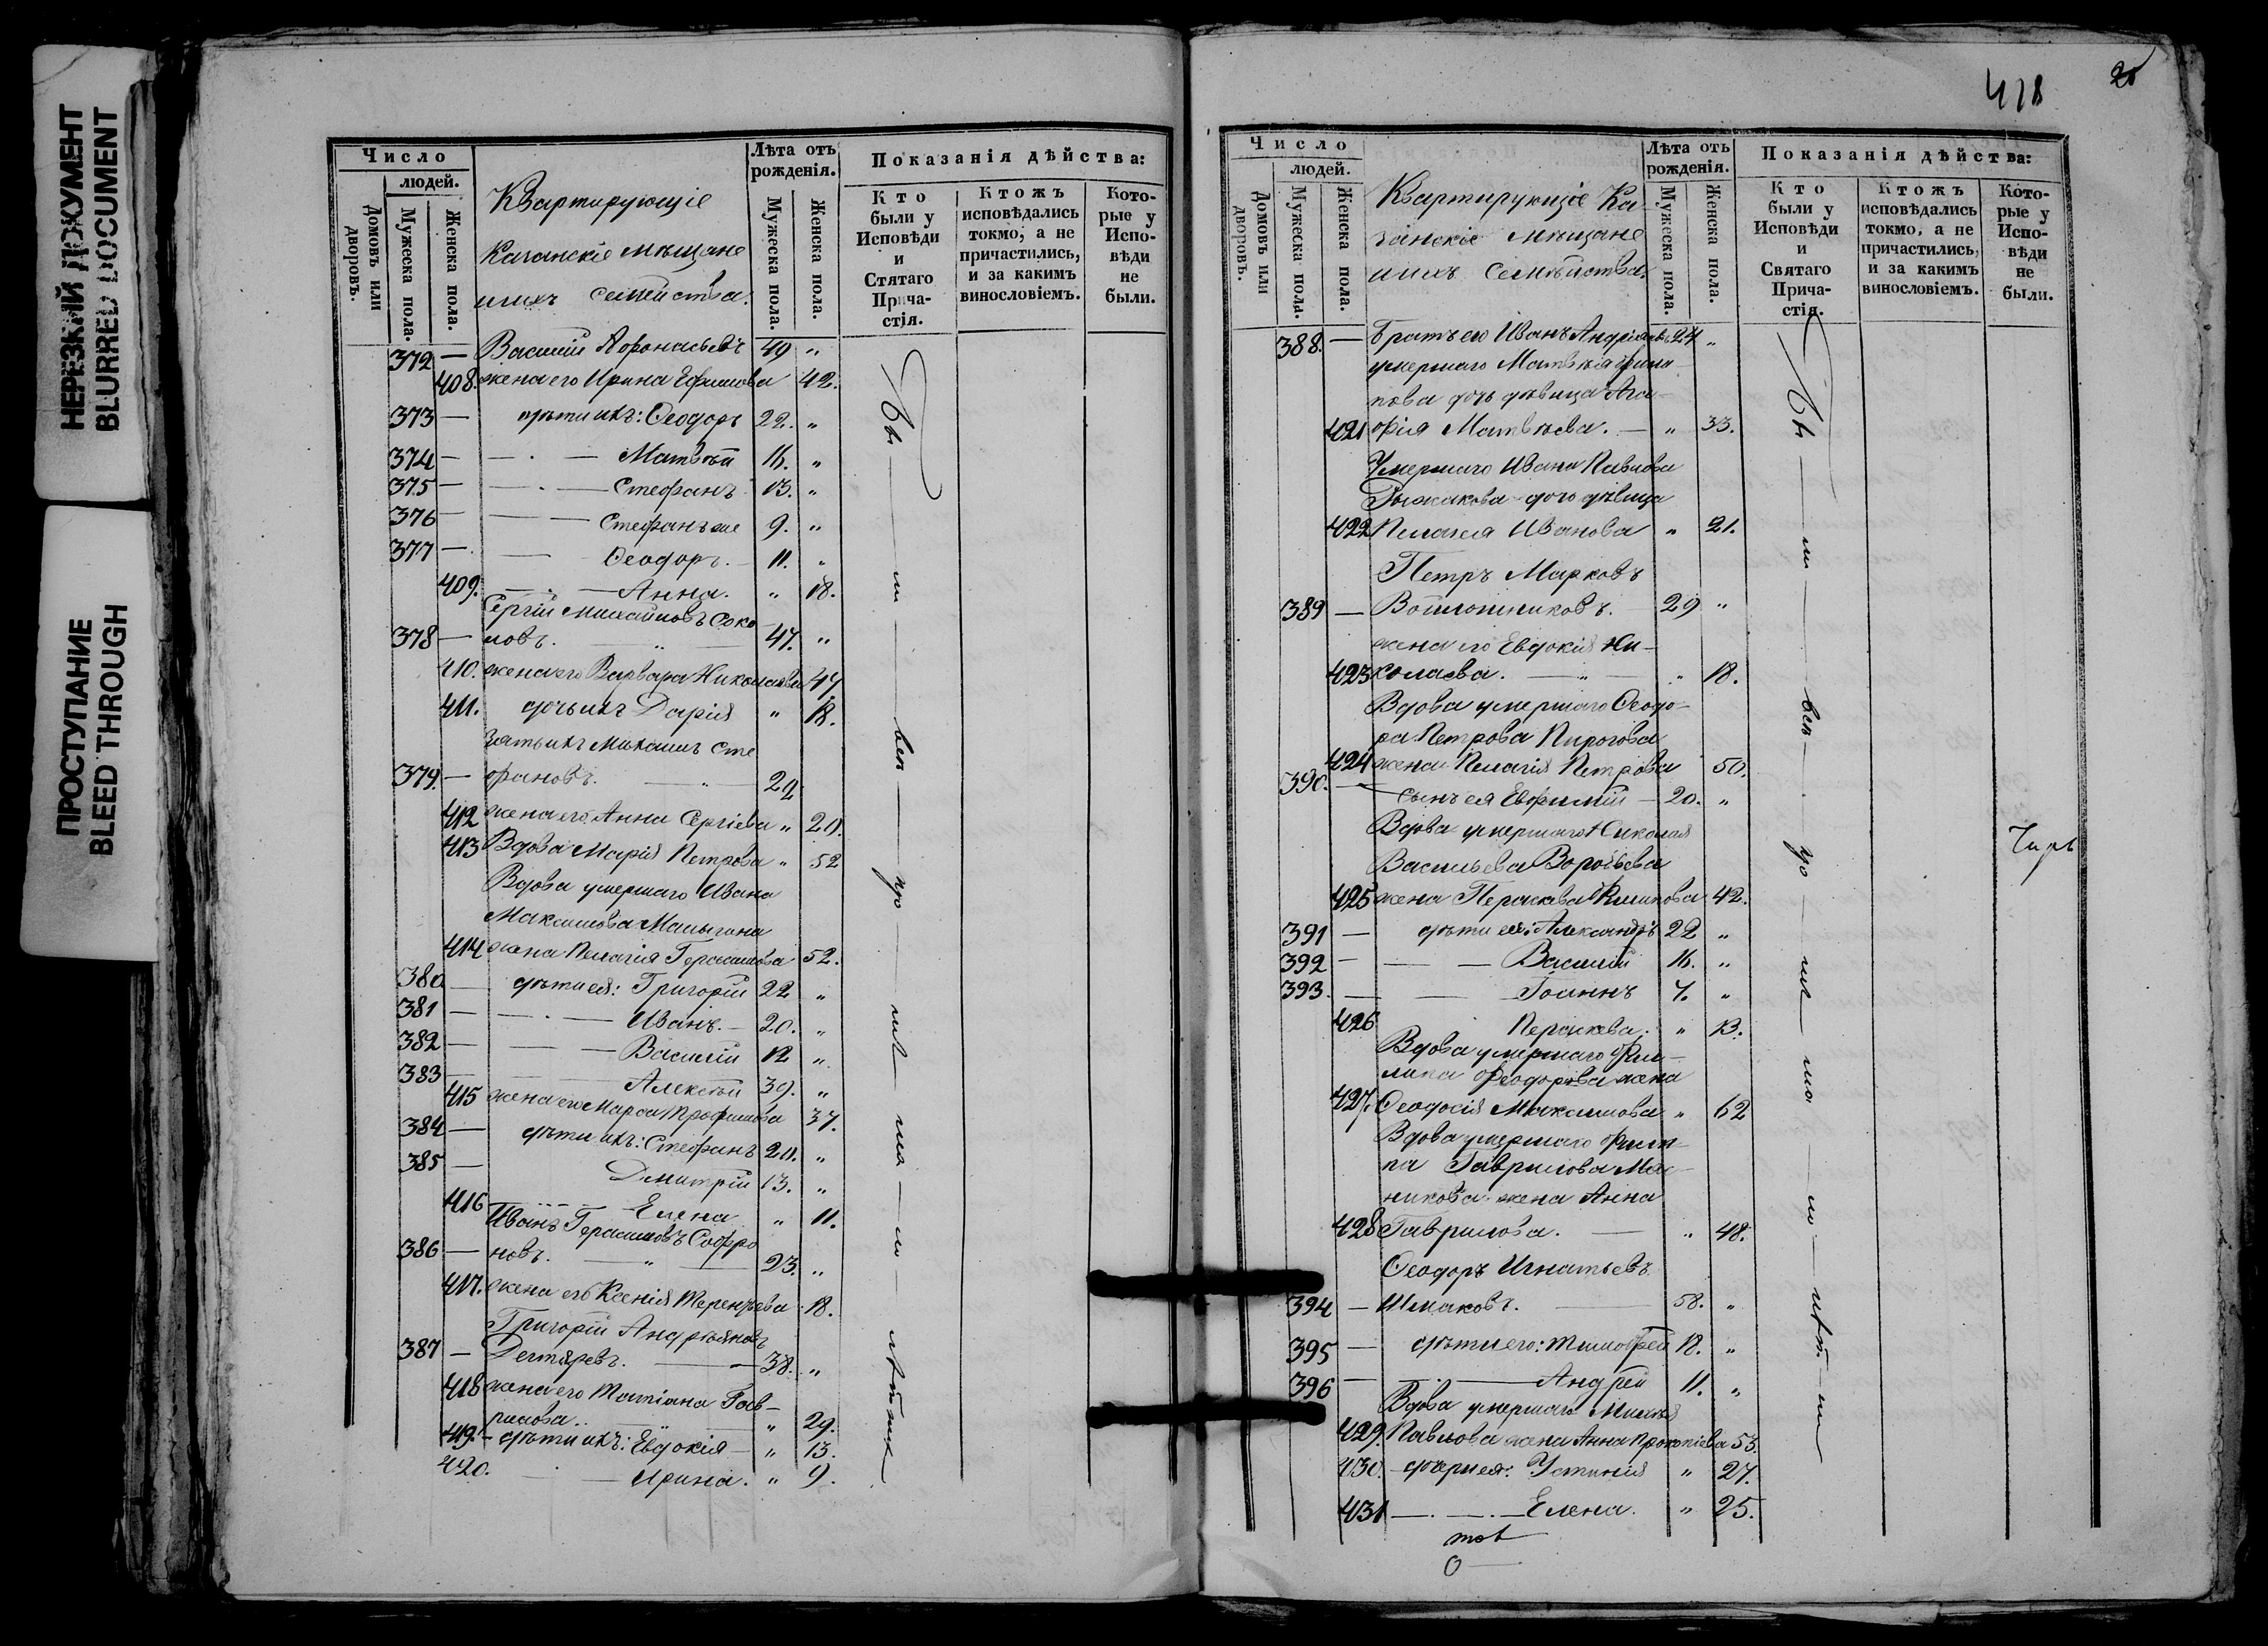 НЕРЕЗКИЙ ДОКУМЕНТ
BLURRED DOCUMENT
ПРОСТУПАНИЕ
BLEED THROUGH
Число
людей.
Домовъ или дворовъ.
Мужеска пола.
Женска пола.
Квартирующіе
Казанскіе мѣщане
ихъ семейства.
Лѣта отъ рожденія.
Мужеска пола.
Женска пола.
Показанія дѣйства:
Кто были у Исповѣди и Стятаго Прича-стія.
Ктожъ исповѣдались токмо, а не причастились, и за какимъ винословіемъ.
Кото-рые у Испо-вѣди не были.
372 — Василій Афонасьевъ 49 "
408. жена его Ирина Ефимова 42.
373 — дѣти ихъ: Ѳеодоръ 22. "
374 — — . — Матвѣй 16. "
375 — — . — Стефанъ 13. "
376 — — Стефанъ же 9. "
377 — — Ѳеодоръ. — 11. "
409. — . — Анна. " 18.
Сергій Михайловъ Соко
378 — ловъ. — " — 47. "
410. жена его Варвара Николаева 47.
411. дочь ихъ Дарія " 18.
Зять ихъ Михаилъ Сте
379. — фановъ. — " — 22
412 жена его Анна Сергіева " 20.
413 Вдова Марія Петрова " 52
Вдова умершаго Ивана
Максимова Малыгина
414 жена Пелагія Герасимова 52.
380 — дѣти ея: Григорій 22 "
381 — — . — Иванъ. — 20. "
382 — — Василій 12 "
383 — Алексѣй 39. "
415 жена его Марѳа Трофимова 37.
384 — дѣти ихъ: Стефанъ 20. "
385 — Димитрій 13. "
416 — Елена " 11.
Иванъ Герасимовъ Софро
386 — новъ. — " — 23. "
417. жена его Ксенія Терентьева 18.
Григорій Андреяновъ
387 — Дегтяревъ. — 38. "
418 жена его Татіана Гав-
рилова. " 29.
419. — дѣти ихъ: Евдокія — " 13.
420. — Ирина. " 9.
418
Число
людей.
Домовъ или дворовъ.
Мужеска пола.
Женска пола.
Квартирующіе Ка-
занскіе мѣщане
ихъ семейства.
Лѣта отъ рожденія.
Мужеска пола.
Женска пола.
Показанія дѣйства:
Кто были у Исповѣди и Святаго Прича-стія.
Ктожъ исповѣдались токмо, а не причастились, и за какимъ винословіемъ.
Кото-рые у Испо-вѣди не были.
388. — Братъ его Иванъ 24 "
умершаго Матвѣя
дочь дѣвица Ага-
421 фія Матвѣева. — " 33.
Умершаго Ивана Павлова
Рыжакова дочь дѣвица
422 Пелагея Иванова " 21.
Петръ Марковъ
389 — Войлошниковъ. — 29 "
жена его Евдокія Ни-
423 колаева. — " — " 18.
Вдова умершаго Ѳеодо-
ра Петрова Пирогова
424 жена Пелагія Петрова 50.
390. — сынъ ея Евфимій — 20. "
Вдова умершаго Николая
Васильева Воробьева
425 жена Параскева Филипова 42.
391 — дѣти ея: Александръ 22 "
392 — — Василій 16. "
393. — — Іоаннъ 7. "
426 Параскева. " 13.
Вдова умершаго Фили-
Ѳеодорова жена
427. Ѳеодосія Максимова " 62
Вдова умершаго Филип-
па Гаврилова Мас-
никова жена Анна
428 Гаврилова. — " 48.
Ѳеодоръ Игнатьевъ
394 — Шмаковъ. — 58. "
395 — дѣти его: Тимофей 18. "
396 — — Андрей 11. "
Вдова умершаго
429. Павлова жена Анна Прокопіева 53.
430. — дочери ея: Устинія " 27.
431 — . — . — Елена. " 25.